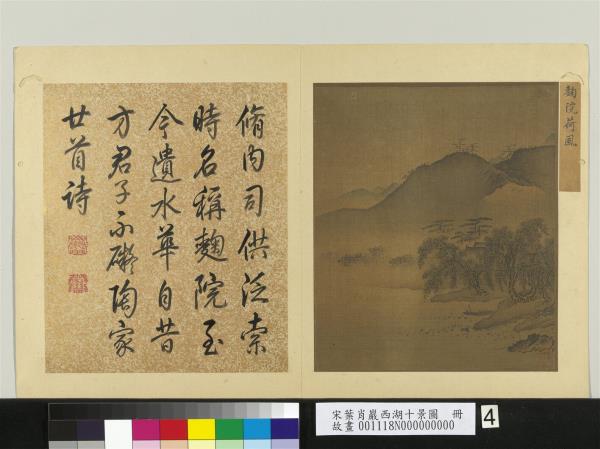 麴院荷風
脩内司供泛索
時名稱麴院至
今遺水華自昔
方君子不礙陶家
廿首詩
宋葉肖巖西湖十景圖 冊
故畫 001118N000000000
4